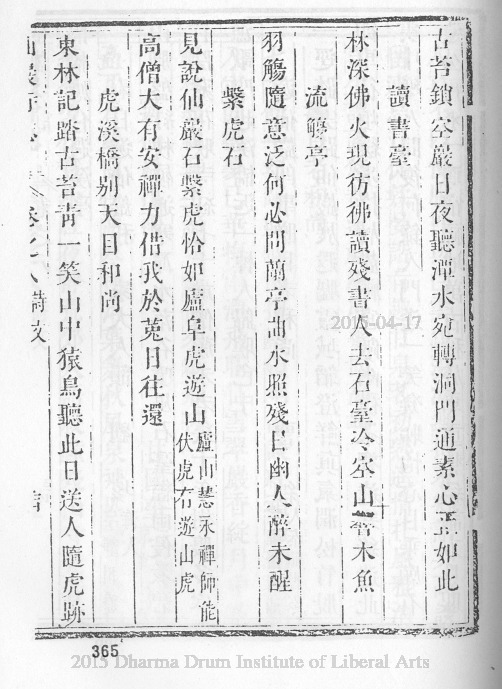 古苔鎖空巖日夜聽潭水宛轉洞門通素心正如此
讀書臺
林深佛火現彷彿讀殘書人去石臺冷空山響木魚
流觴亭
羽觴隨意泛何必問蘭亭曲水照殘日幽人醉未醒
繫虎石
見說仙巖石繫虎恰如廬阜虎遊山廬山慧永禪師能
伏虎有遊山虎
高僧大有安禪力借我於菟日往還
虎溪橋別天目和尚
東林記踏古苔青一笑山中猿鳥聽此日送人隨虎跡
仙巖 卷之八 詩文
365
2015-04-17
2015 Dharma Drum Institute of Liberal Arts